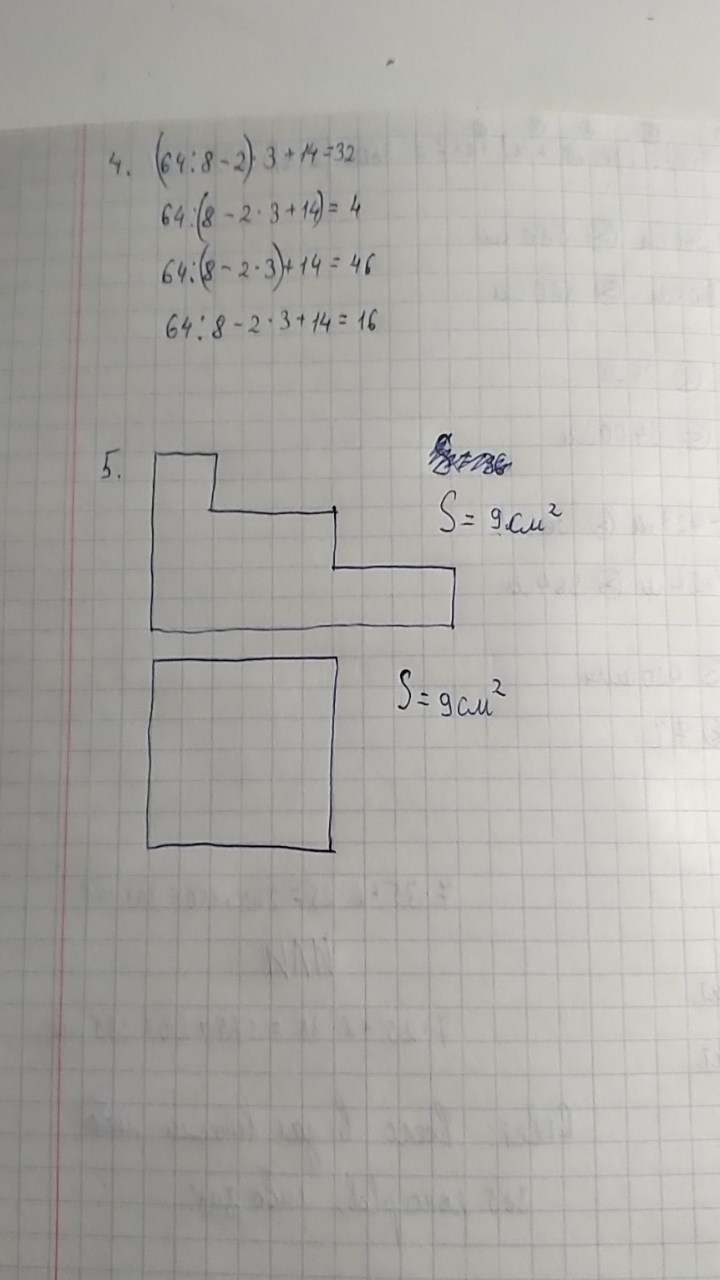 4. (64:8-2)·3+14=32
64:(8-2·3+14)=4
64:(8-2·3)+14=46
64:8-2·3+14=16
5.
S=9см²
S=9см²